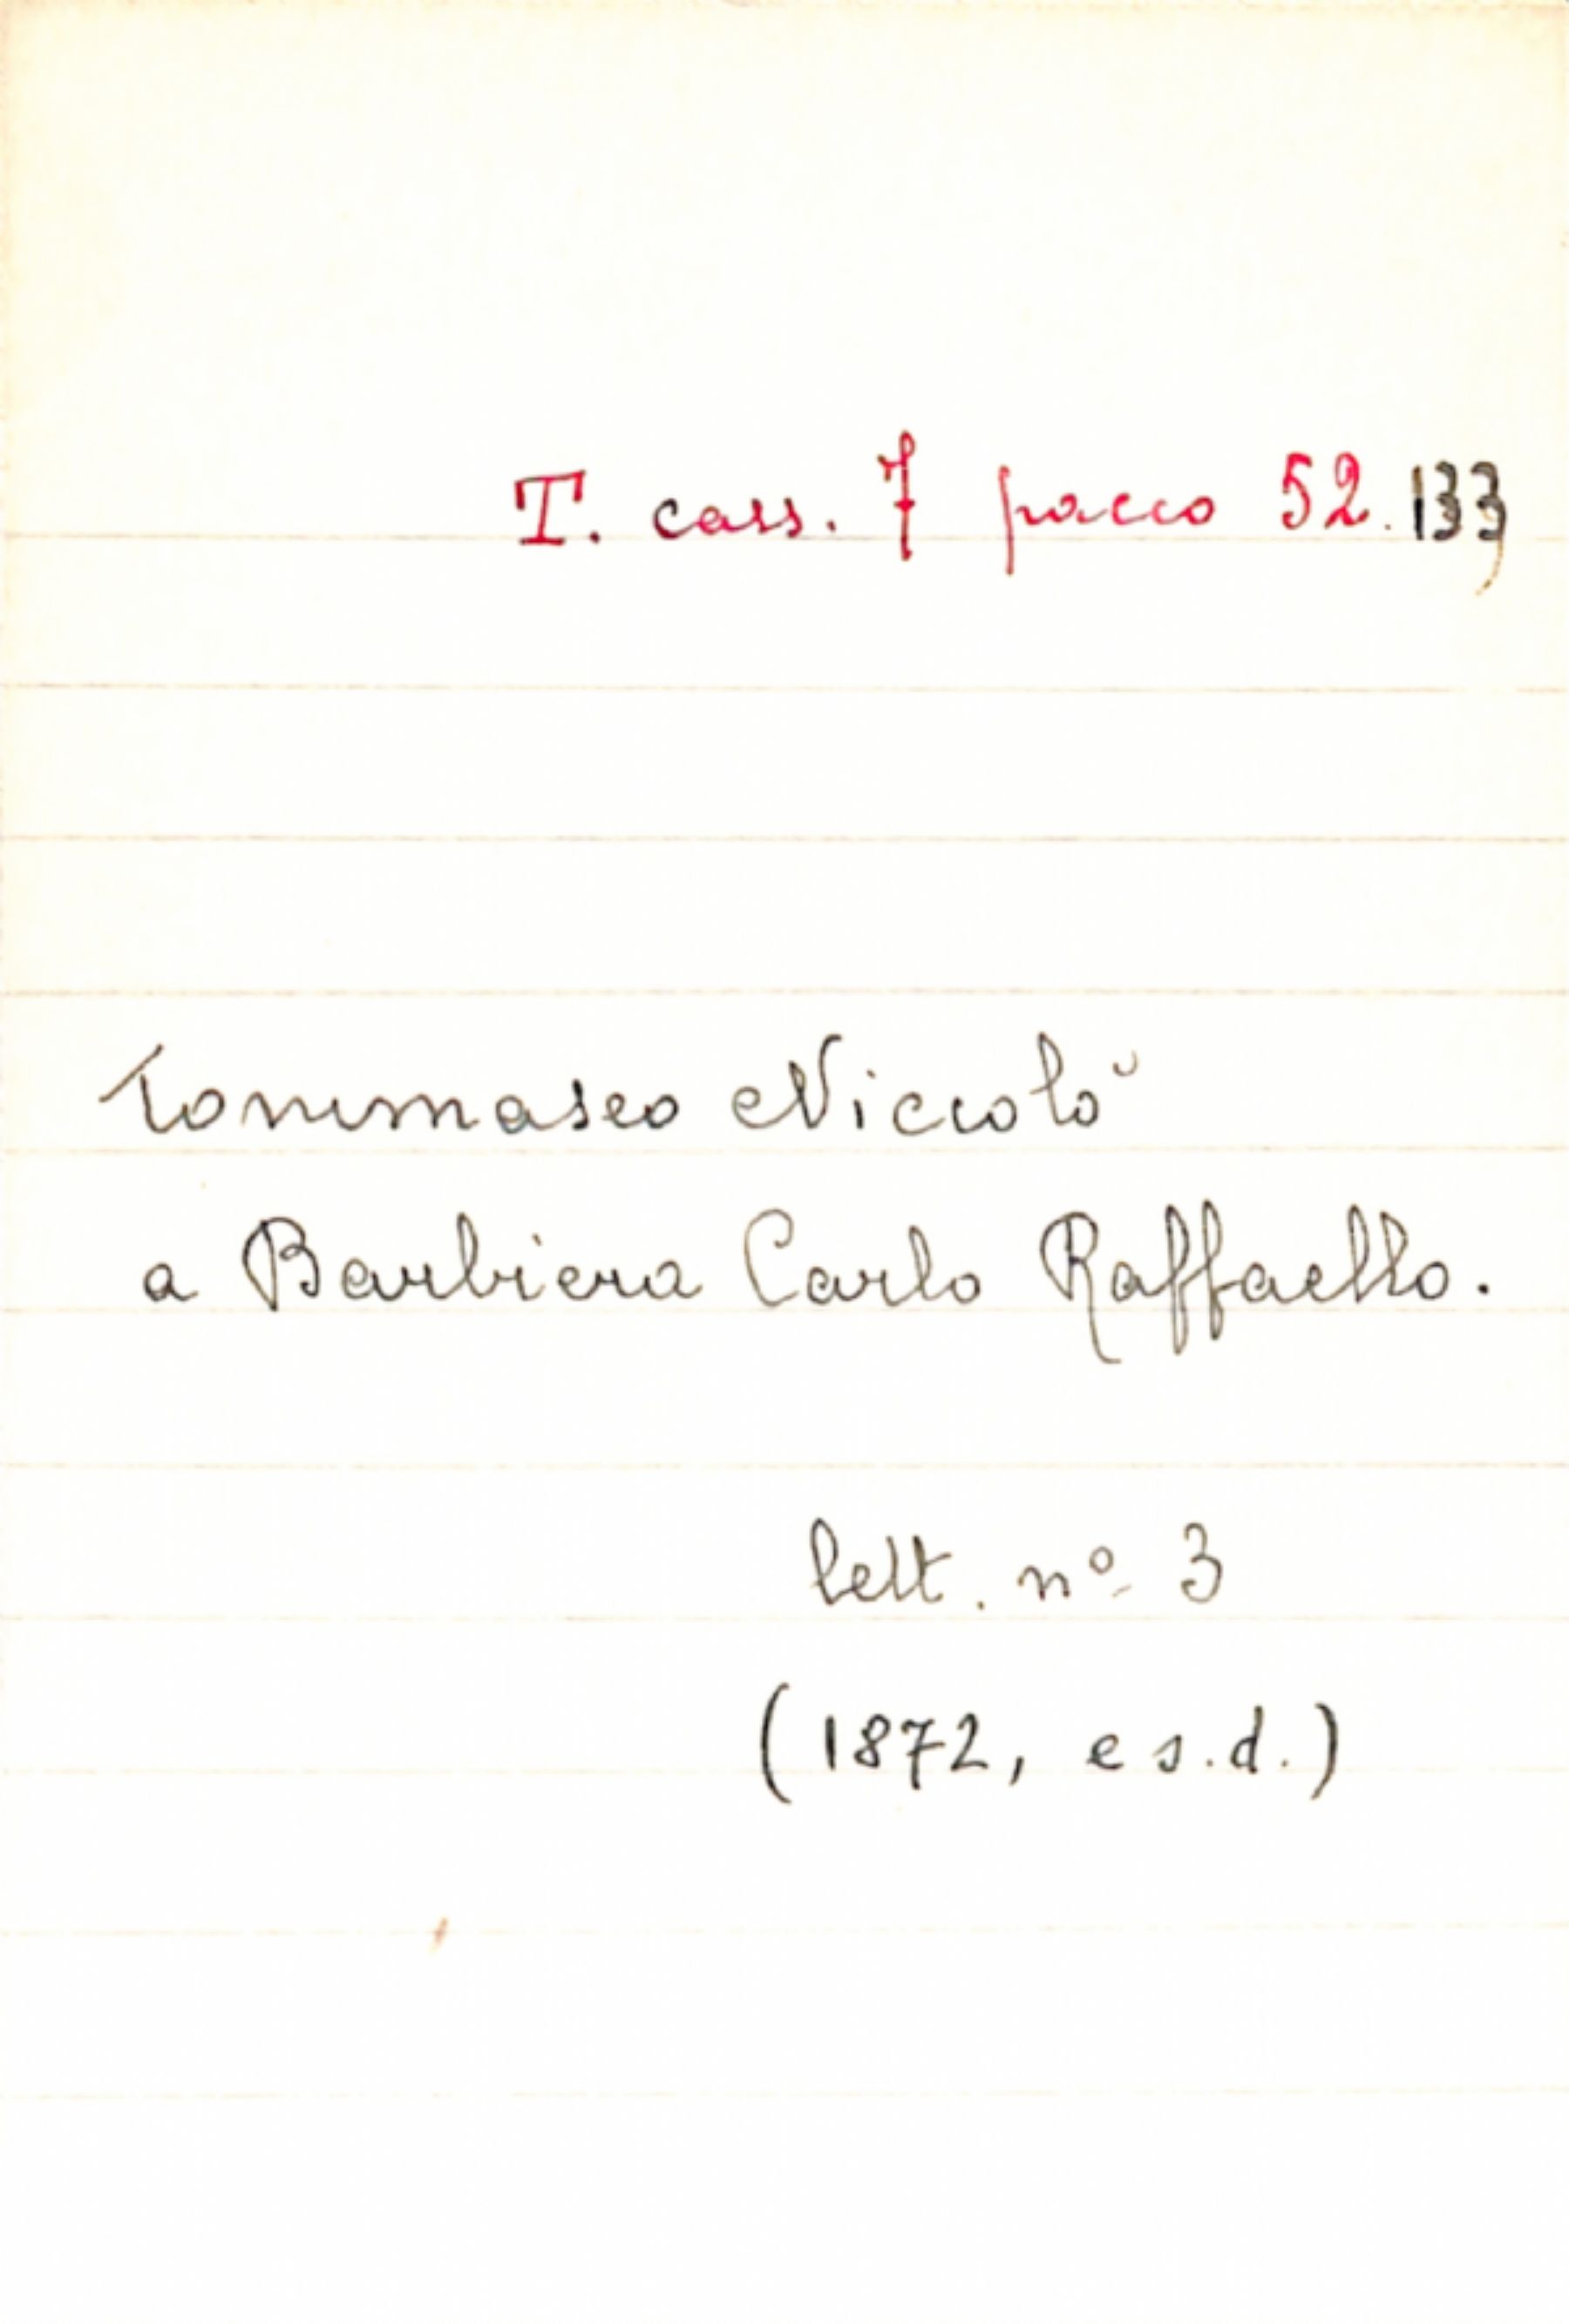 T. cass. 7 pacco 52.133
Tommaseo Niccolò
a Barbiera Carlo Raffaello.
lett. nº 3
(1872, e s.d.)